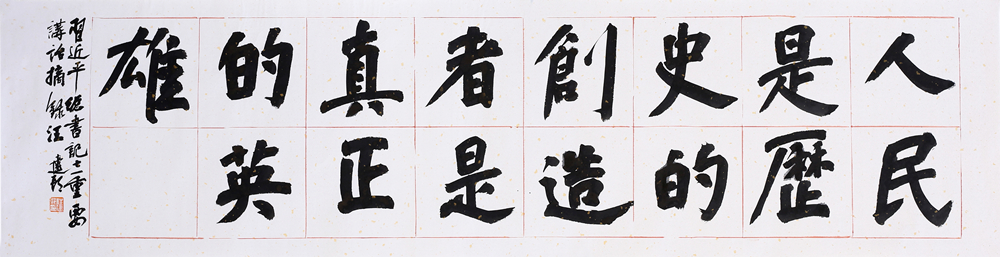 人民
是歷
史的
創造
者是
真正
的英
雄
習近平總書記七一重要
講話摘錄汪